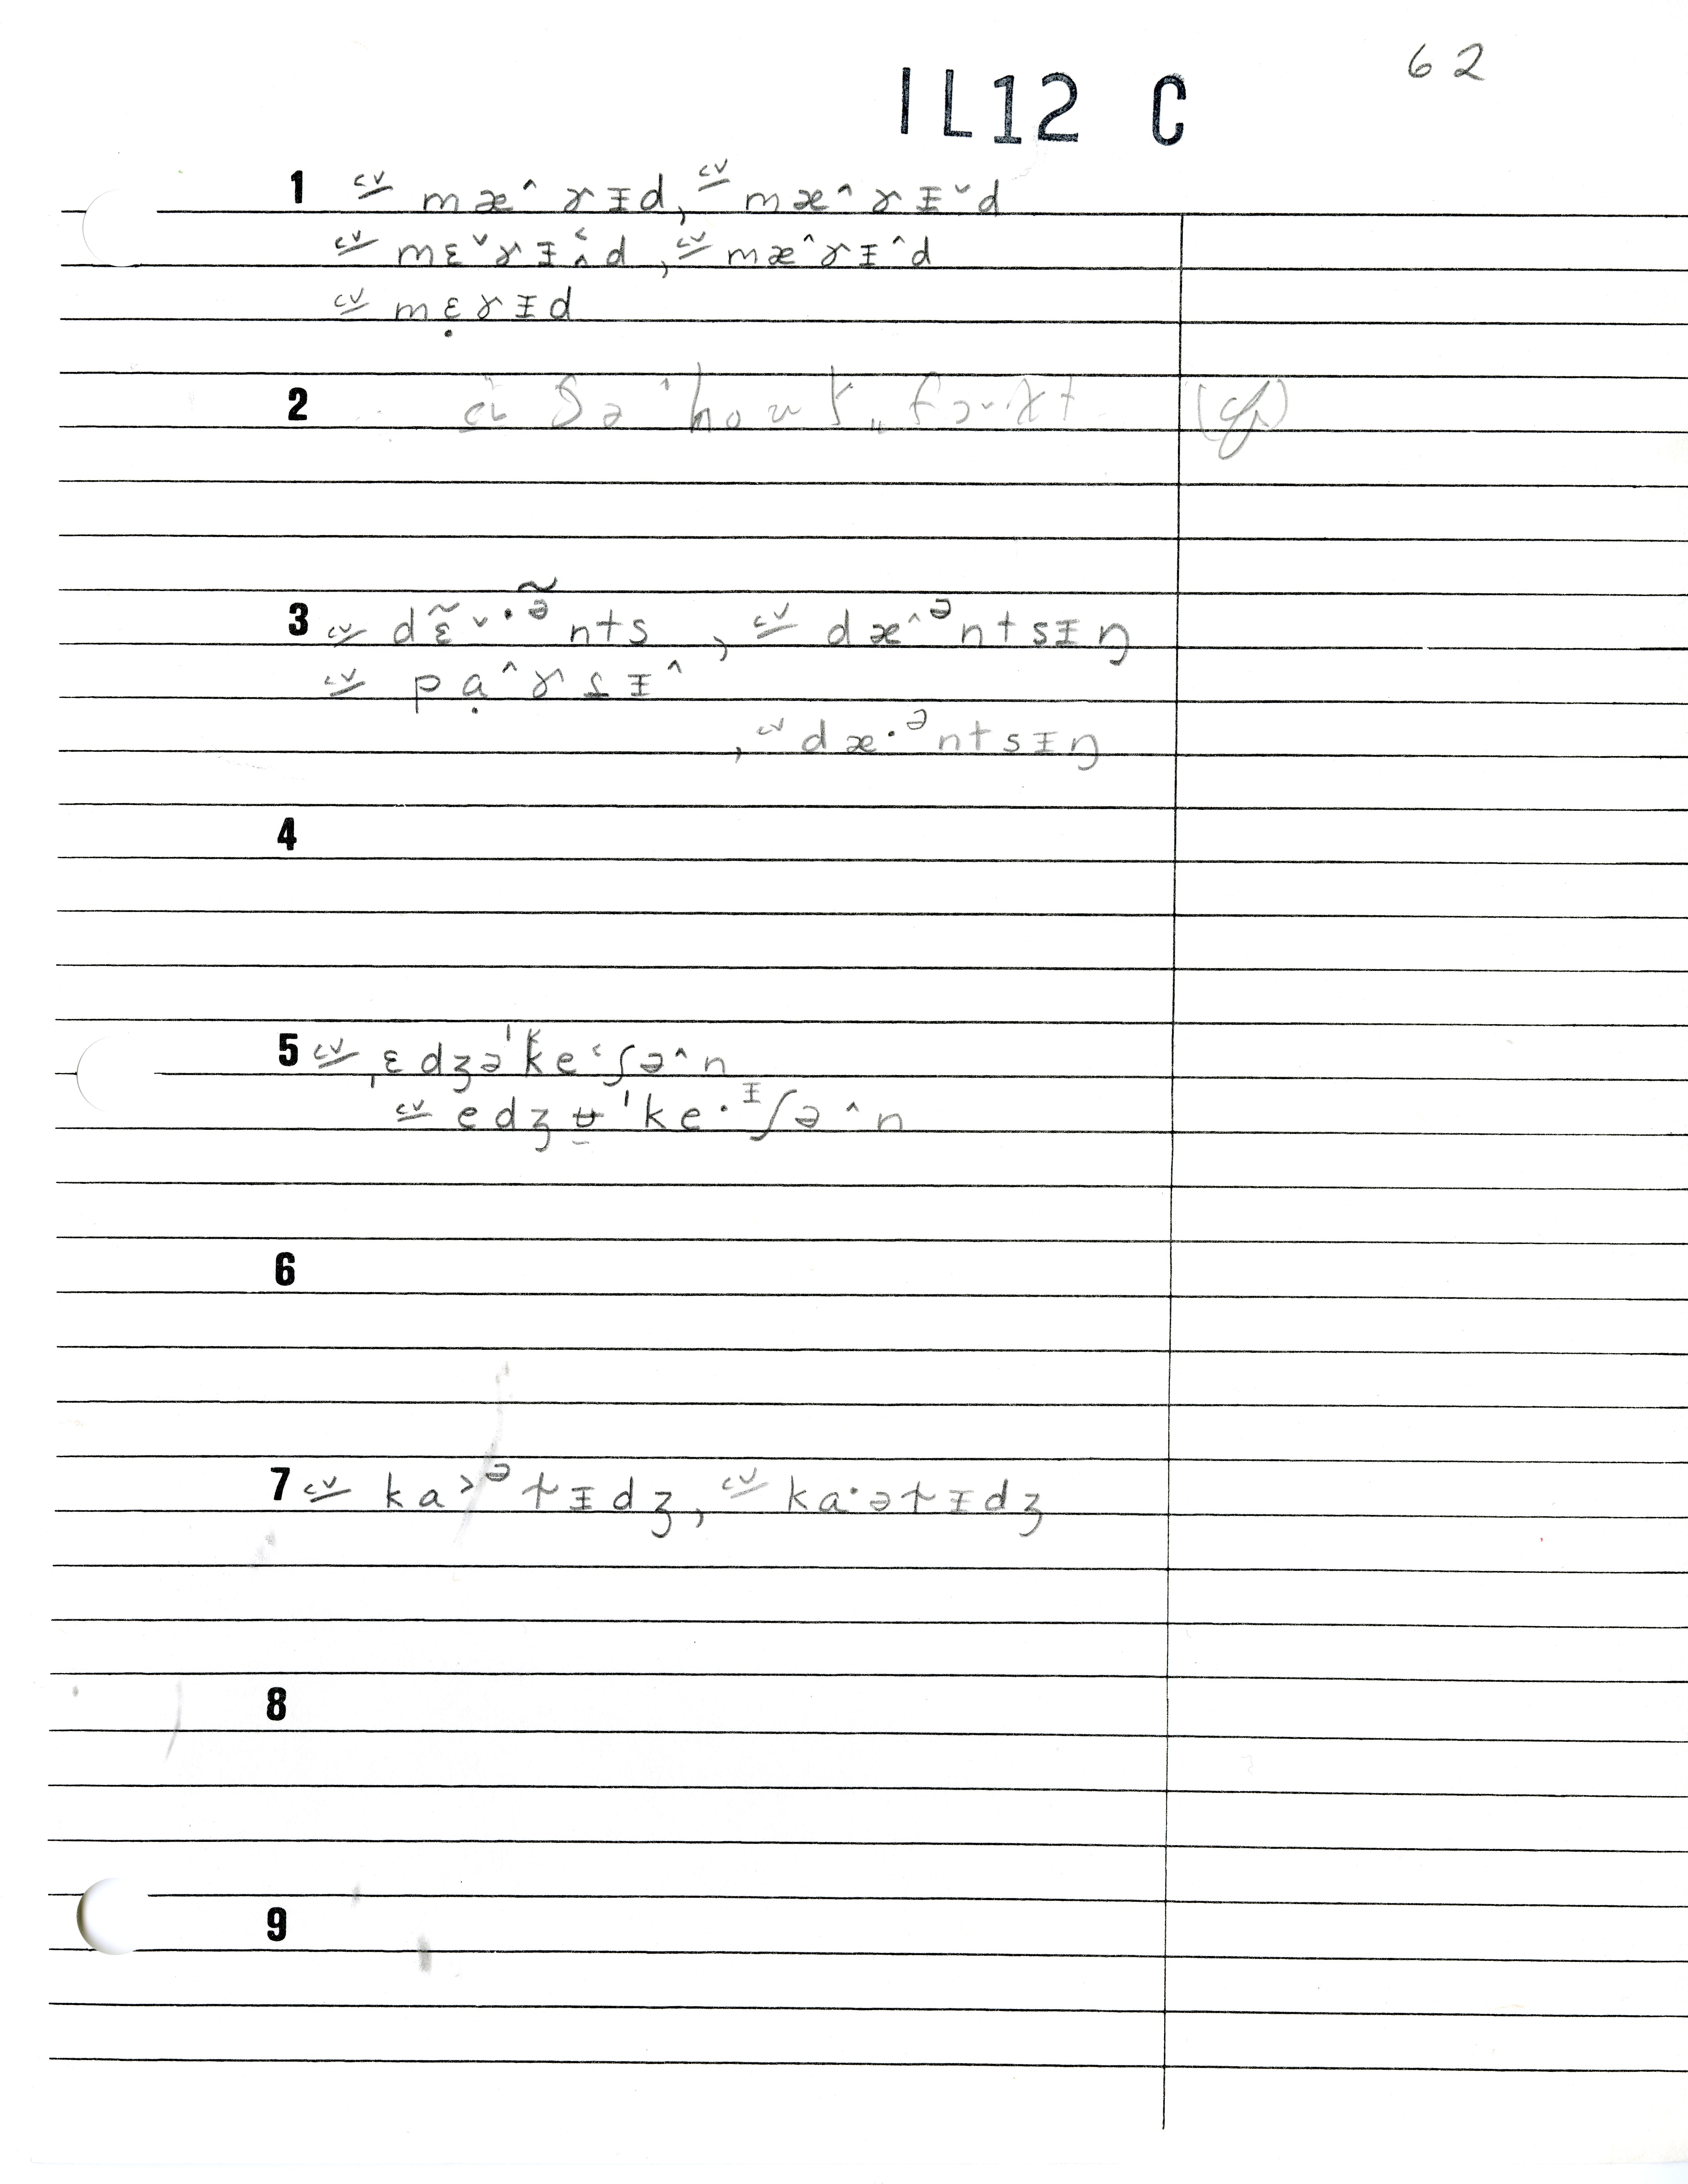 62
IL12 C
1 cv mæ^ɤɪd, cv mæ^ɤɪˇd
cv mɛˇɤɪd, cv mæ^ɤɪ^d
cv mɛ̣ɤɪd
2
3 cv dɛ̃ˇ·ə̃nts, cv dæ^ᵊntsɪŋ
cv pạ^ɤsɪ^
, cv dæ·ᵊntsɪŋ
4
5 cv ˌɛdʒəˈke˂ʃə^n
cv edʒʉˈke·ᶦʃə^n
6
7 cv ka˃ᵊtɪdʒ, cv ka·ətɪdʒ
8
9